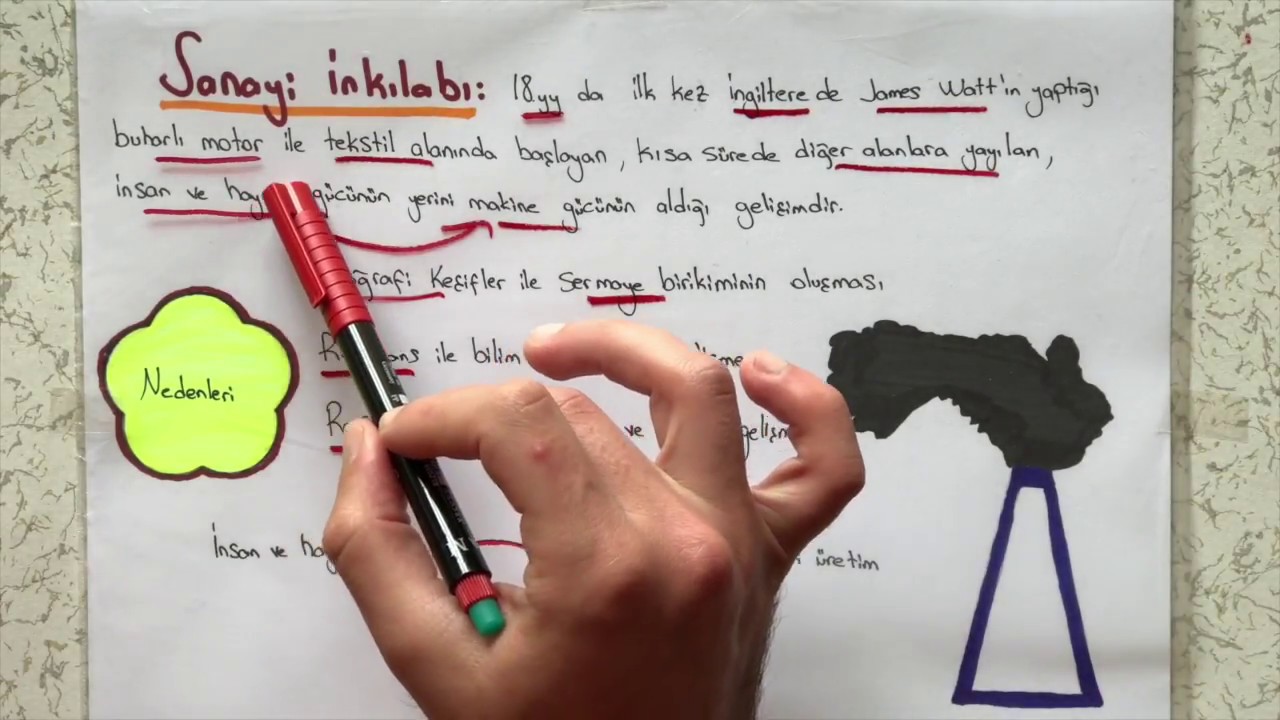 Sanayi inkılabı: 18.yy da ilk kez ingiltere de James Watt'ın yaptığı
buharlı motor ile tekstil alanında başlayan, kısa sürede diğer alanlara yayılan,
insan ve gücünün yerini makine gücünün aldığı gelişimdir.
Keşifler ile sermaye birikiminin oluşması
ile bilim
Nedenleri
ve
İnsan ve
üretim